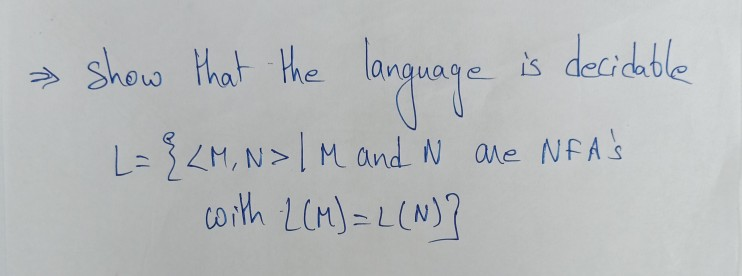 ⇒ Show that the language is decidable
L = {<M, N> | M and N are NFA's
with L(M) = L(N)}